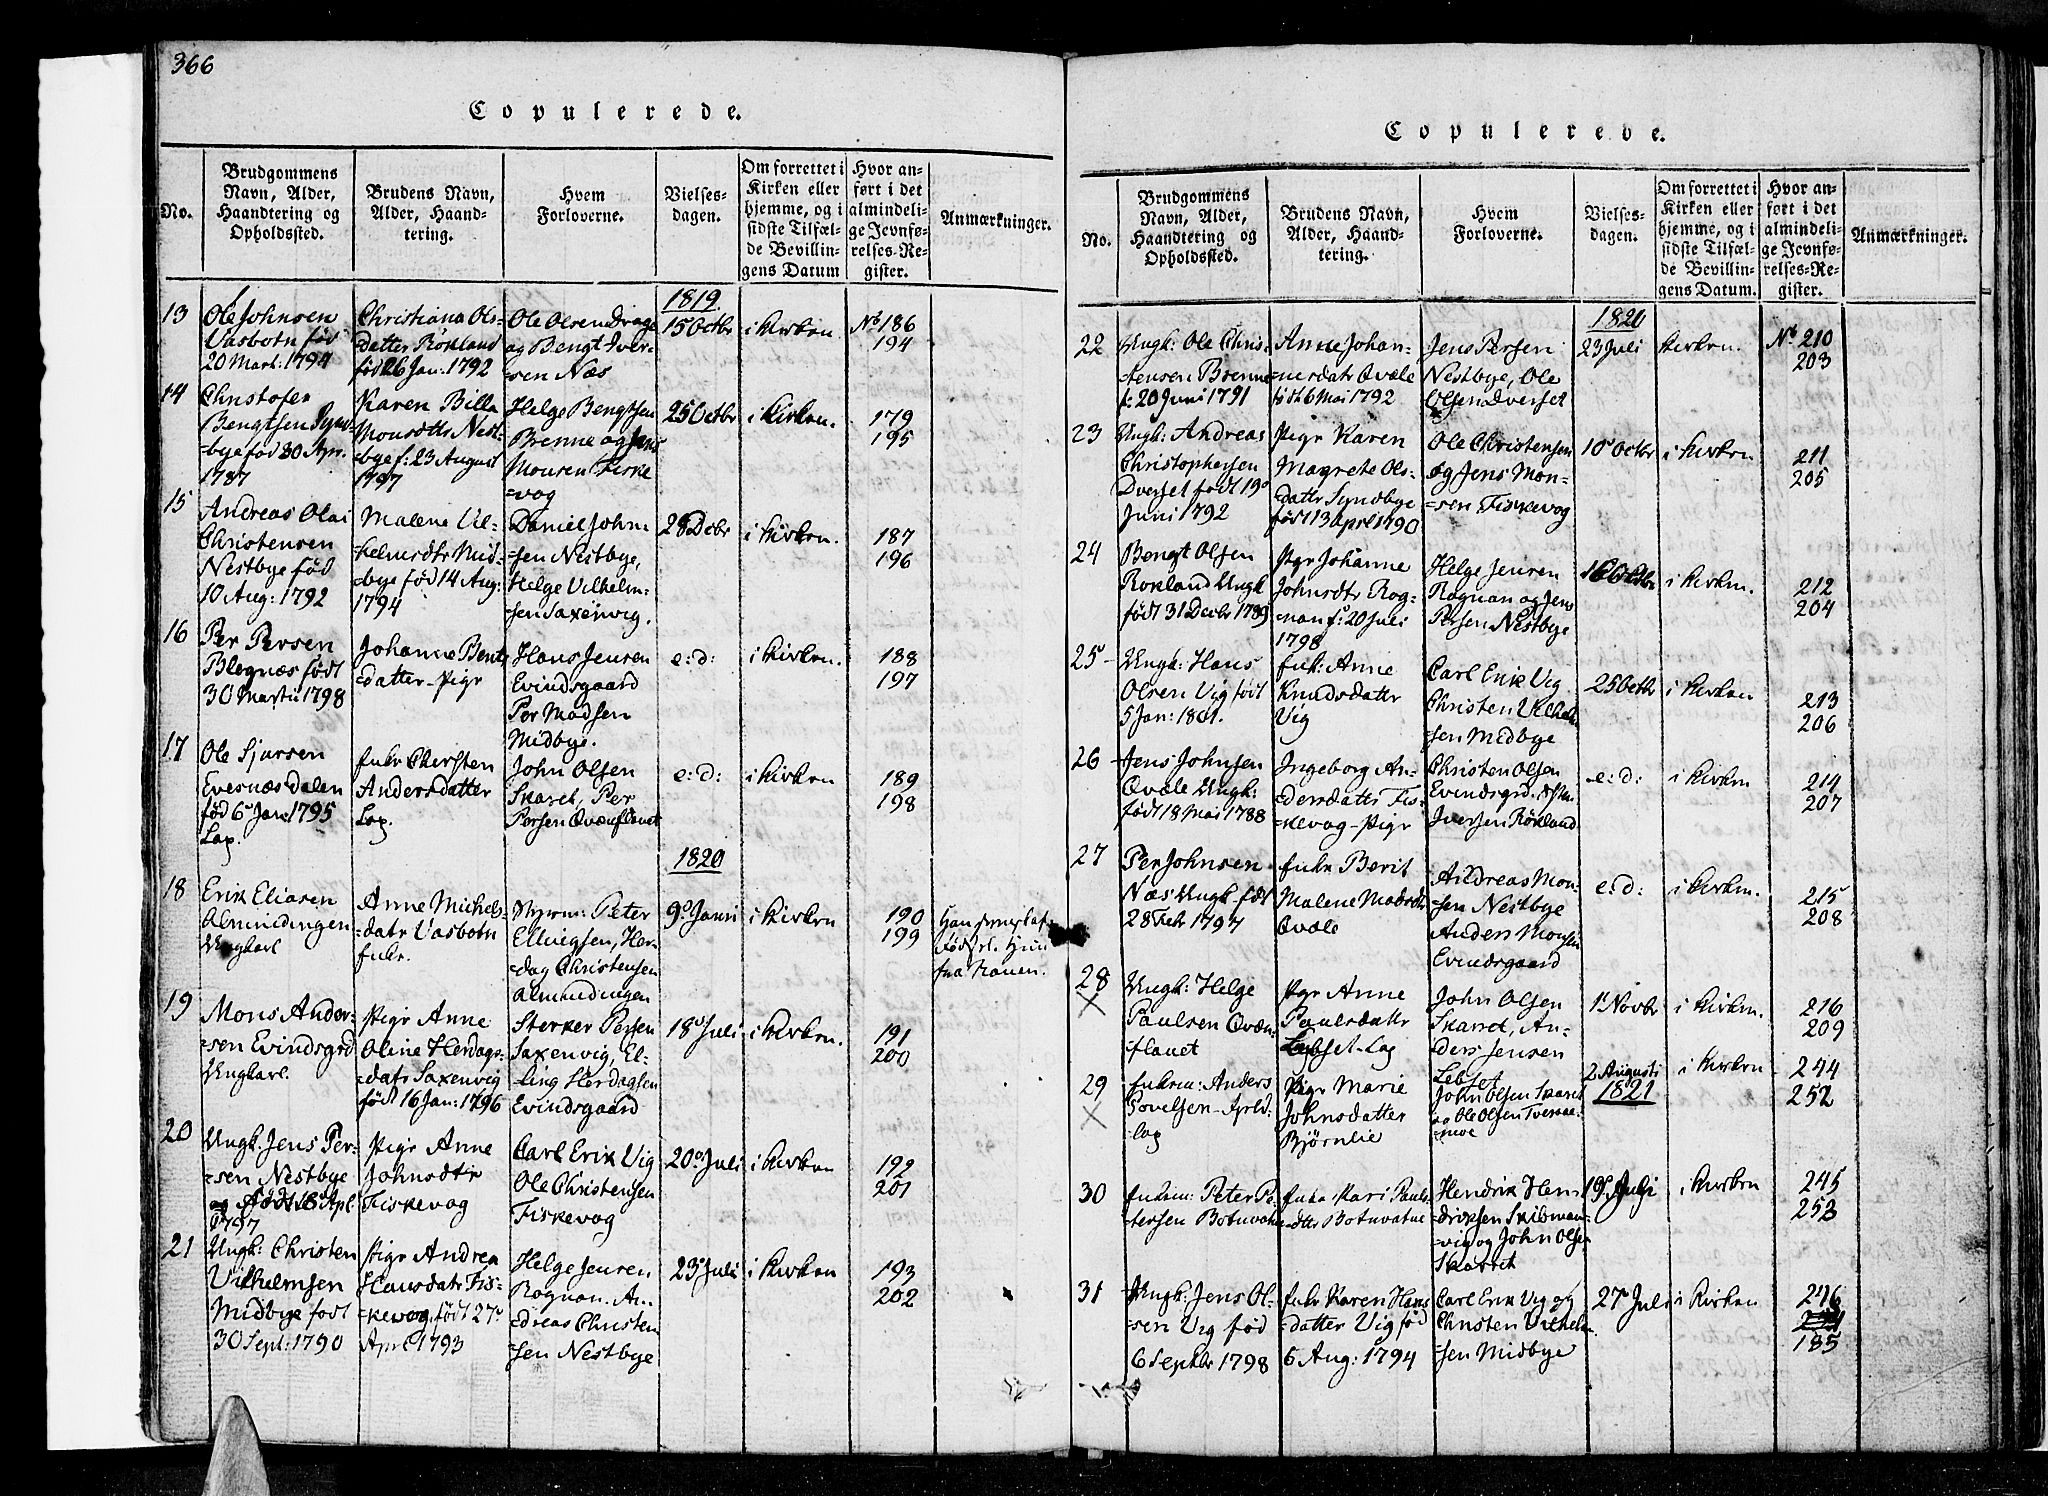 366
Copulerede.
No.
Brudgommens
Navn, Alder,
Haandtering og
Opholdssted.
Brudens Navn,
Alder, Haand-
tering.
Hvem
Forloverne.
Vielses-
dagen.
Om forrettet i
Kirken eller
hjemme, og i
sidste Tilfæl-
de Bevillin-
gens Datum
Hvor an-
ført i det
almindeli-
ge Jevnfø-
relses-Re-
gister.
Anmærkninger.
1819
13
Ole Johnsen
Vasbotn fød
20 Mart: 1794
Christiana Ols-
datter Røkland
fød 26 Jan: 1792
Ole Olsen Drage
og Bengt Iver-
sen Næs
15 Octbr
i Kirken
No 186
194
14
Christofer
Bengtsen Synd-
bye fød 30 Apr.
1787
Karen Billa
Monsdtr Nest-
bye f: 23 August
1797
Helge Bengtsen
Brenne og Jens
Monsen Fiske
=vog
25 Octbr
i Kirken.
179
195
15
Andreas Olai
Christensen
Nestbye fød
10 Aug: 1792
Malene Vil-
helmsdtr Mid-
bye fød 14 Aug:
1794
Daniel John-
=sen Nestbye,
Helge Vilhelm-
sen Saxenvig.
28 Decbr
i Kirken.
187
196
16
Per Persen
Blegnæs født
30 Martii 1798
Johanne Bents
datter - Pigr
Hans Jensen
Evindsgaard
Per Madsen
Midbye.
e: d:
i Kirken.
188
197
17
Ole Sjursen
Evesnesdalen
fød 6 Jan: 1795
Lap.
Enkr Chersten
Andersdatter
Lap.
John Olsen
Skaret, Per
Persen Qvænflaaet
e: d:
i Kirken
189
198
1820
18
Erik Eliasen
Almindingen
Ungkarl
Anne Michels-
=datr Vasbotn
Enkr.
Peter
Ellingsen, Her-
=dag Christensen
Almindingen
9 Janri
i Kirken
190
199
19
Mons Ander-
sen Evindsgrd
Ungkarl.
Pigr Anne
Oline Herdags-
=datr Saxenvig
født 16 Jan: 1796
Sterker Persen
Saxenvig, El-
ling Herdagsen
Evindsgaard
18 Juli
i Kirken.
191
200
20
Ungk: Jens Per-
=sen Nestbye
Apl.
1797
Pigr Anne
Johnsdtr
Fiskevog
Carl Erik Vig
Ole Christensen
Fiskevog
20 Juli
i Kirken
192
201
21
Ungk: Christen
Vilhelmsen
Midbye født
30 Sept: 1790
Pigr Andrea
Hansdatr Fis-
=kevog, født 27
April 1793
Helge Jensen
Rognan. An-
=dreas Christen
sen Nestbye
23 Juli
i Kirken
193
202
Copulerede.
No.
Brudgommens
Navn, Alder,
Haandtering og
Opholdssted.
Brudens Navn,
Alder, Haand-
tering.
Hvem
Forloverne.
Vielses-
dagen.
Om forrettet i
Kirken eller
hjemme, og i
sidste Tilfæl-
de Bevillin-
gens Datum.
Hvor an-
ført i det
almindeli-
ge Jevnfø-
relses-Re-
gister.
Anmærkninger.
1820
22
Ungk: Ole Chris-
tensen Brenne
f: 20 Juni 1791
Anne Johan-
=nesdatr Qvale
født 6 Mai 1792
Jens Persen
Nestbye, Ole
Olsen Dverset
23 Juli
Kirken.
No 210
203
23
Ungk: Andreas
Christophersen
Dverset født 19
Juni 1792
Pigr Karen
Magrete Ols-
datter Syndbye
født 13 April 1790
Ole Christensen
og Jens Mon-
=sen Fiskevog
10 Octbr
i Kirken
211
205
24
Bengt Olsen
Rokland Ungk
født 31 Decbr 1789
Pigr Johanne
Johnsdtr Rog-
nan f: 20 Juli
1798
Helge Jensen
Rognan og Jens
Persen Nestbye
16 Octbr
i Kirken.
212
204
25
Ungk: Hans
Olsen Vig født
5 Jan: 1801.
Enk: Anne
Knudsdatter
Vig
Carl Erik Vig
Christen Vilhelm
sen Midbye
25 Octbr
i Kirken
213
206
26
Jens Johnsen
Qvale Ungk:
født 18 Mai 1788
Ingeborg An-
=dersdattr Fis-
=kevog - Pigr
Christen Olsen
Evindsgrd.
Iversen Røkland
e: d:
i Kirken
214
207
27
Per Johnsen
Næs Ungk. fød
28 Febr 1797
Enkr Berit
Malene Madsdtr
Qvale
Andreas Mon-
=sen Nestbye
Anders Monsen
Evindsgaard
e: d:
i Kirken.
215
208
28
Ungk: Helge
Paulsen Qvæn-
flaaet
Pigr Anne
Paulsdattr
Lebset - Lap
John Olsen
Skaret, An-
ders Jensen
Lebset
1 Novbr
i Kirken.
216
209
29
Enkem: Anders
Povelsen
Lap
Pigr Marie
Johnsdatter
Bjørnlie
John Olsen Skaret
og Ole Olsen Tveraa-
=moe
2 Augusti
1821
i Kirken
244
252
30
Enkem: Peter Pe-
tersen Botnvatne
Enkr Kari Pauls
dttr Botnvatne
Hendrik Hen-
driksen Skibman-
=vig og John Olsen
Skaret
19 Juli
i Kirken
245
253
31
Ungk: Jens Ol-
=sen Vig fød
6 Septbr 1798
Enkr Karen Hans
=datter Vig fød
6 Aug: 1794
Carl Erik Vig og
Christen Vilhelm-
sen Midbye
27 Juli
i Kirken
246
185